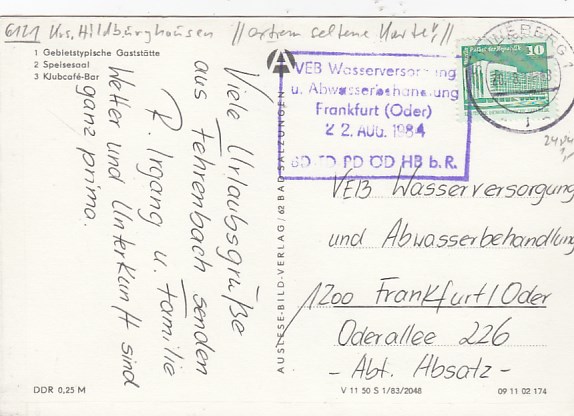 6121 Krs. Hildburghausen //extrem seltene Karte!//
1 Gebietstypische Gaststätte
2 Speisesaal
3 Klubcafé-Bar
Viele Urlaubsgrüße
aus Fehrenbach senden
R. Irgang u. Familie
Wetter und Unterkunft sind
ganz prima.
DDR 0,25 M
AUSLESE-BILD-VERLAG / 62 BAD SALZUNGEN
A
VEB Wasserversorgung
u. Abwasserbehandlung
Frankfurt (Oder)
2 2. AUG. 1984
PD ÖD HB b. R.
10
VEB Wasserversorgung
und Abwasserbehandlung
1200 Frankfurt/Oder
Oderallee 226
- Abt. Absatz -
V 11 50 S 1/83/2048
09 11 02 174